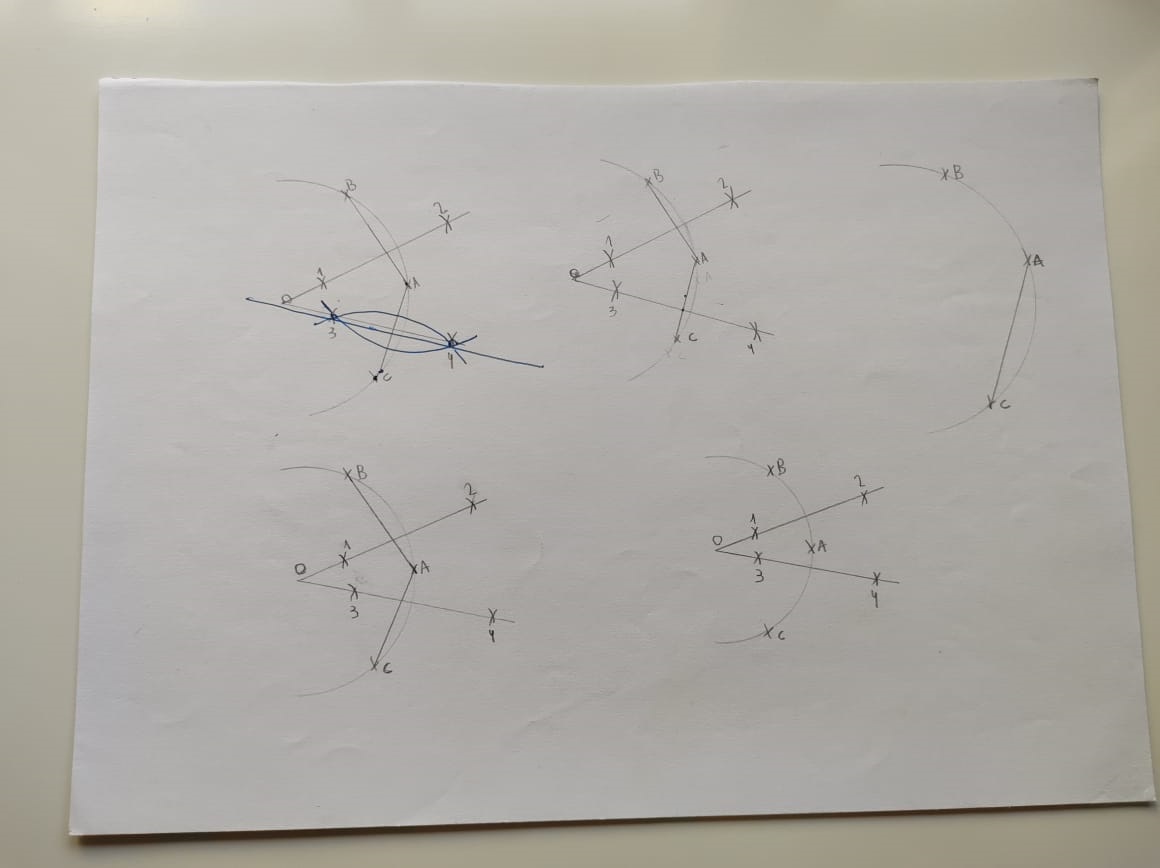 B
2
1
O
A
3
4
C
B
2
1
O
A
3
C
4
B
A
C
B
2
1
O
A
3
4
C
B
2
1
O
A
3
4
C